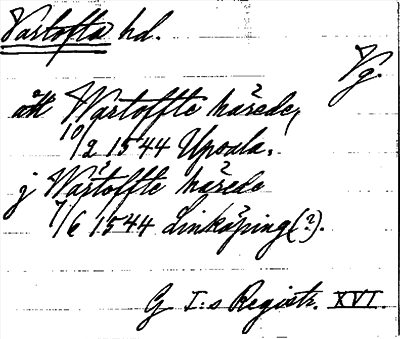 Vartofta hd.
Vg.
att Wartoffte härede,
10/2 1544 Upsala.
j Wartoffte härede
7/6 1544 Linköping (?).
G I:s Registr. XVI.